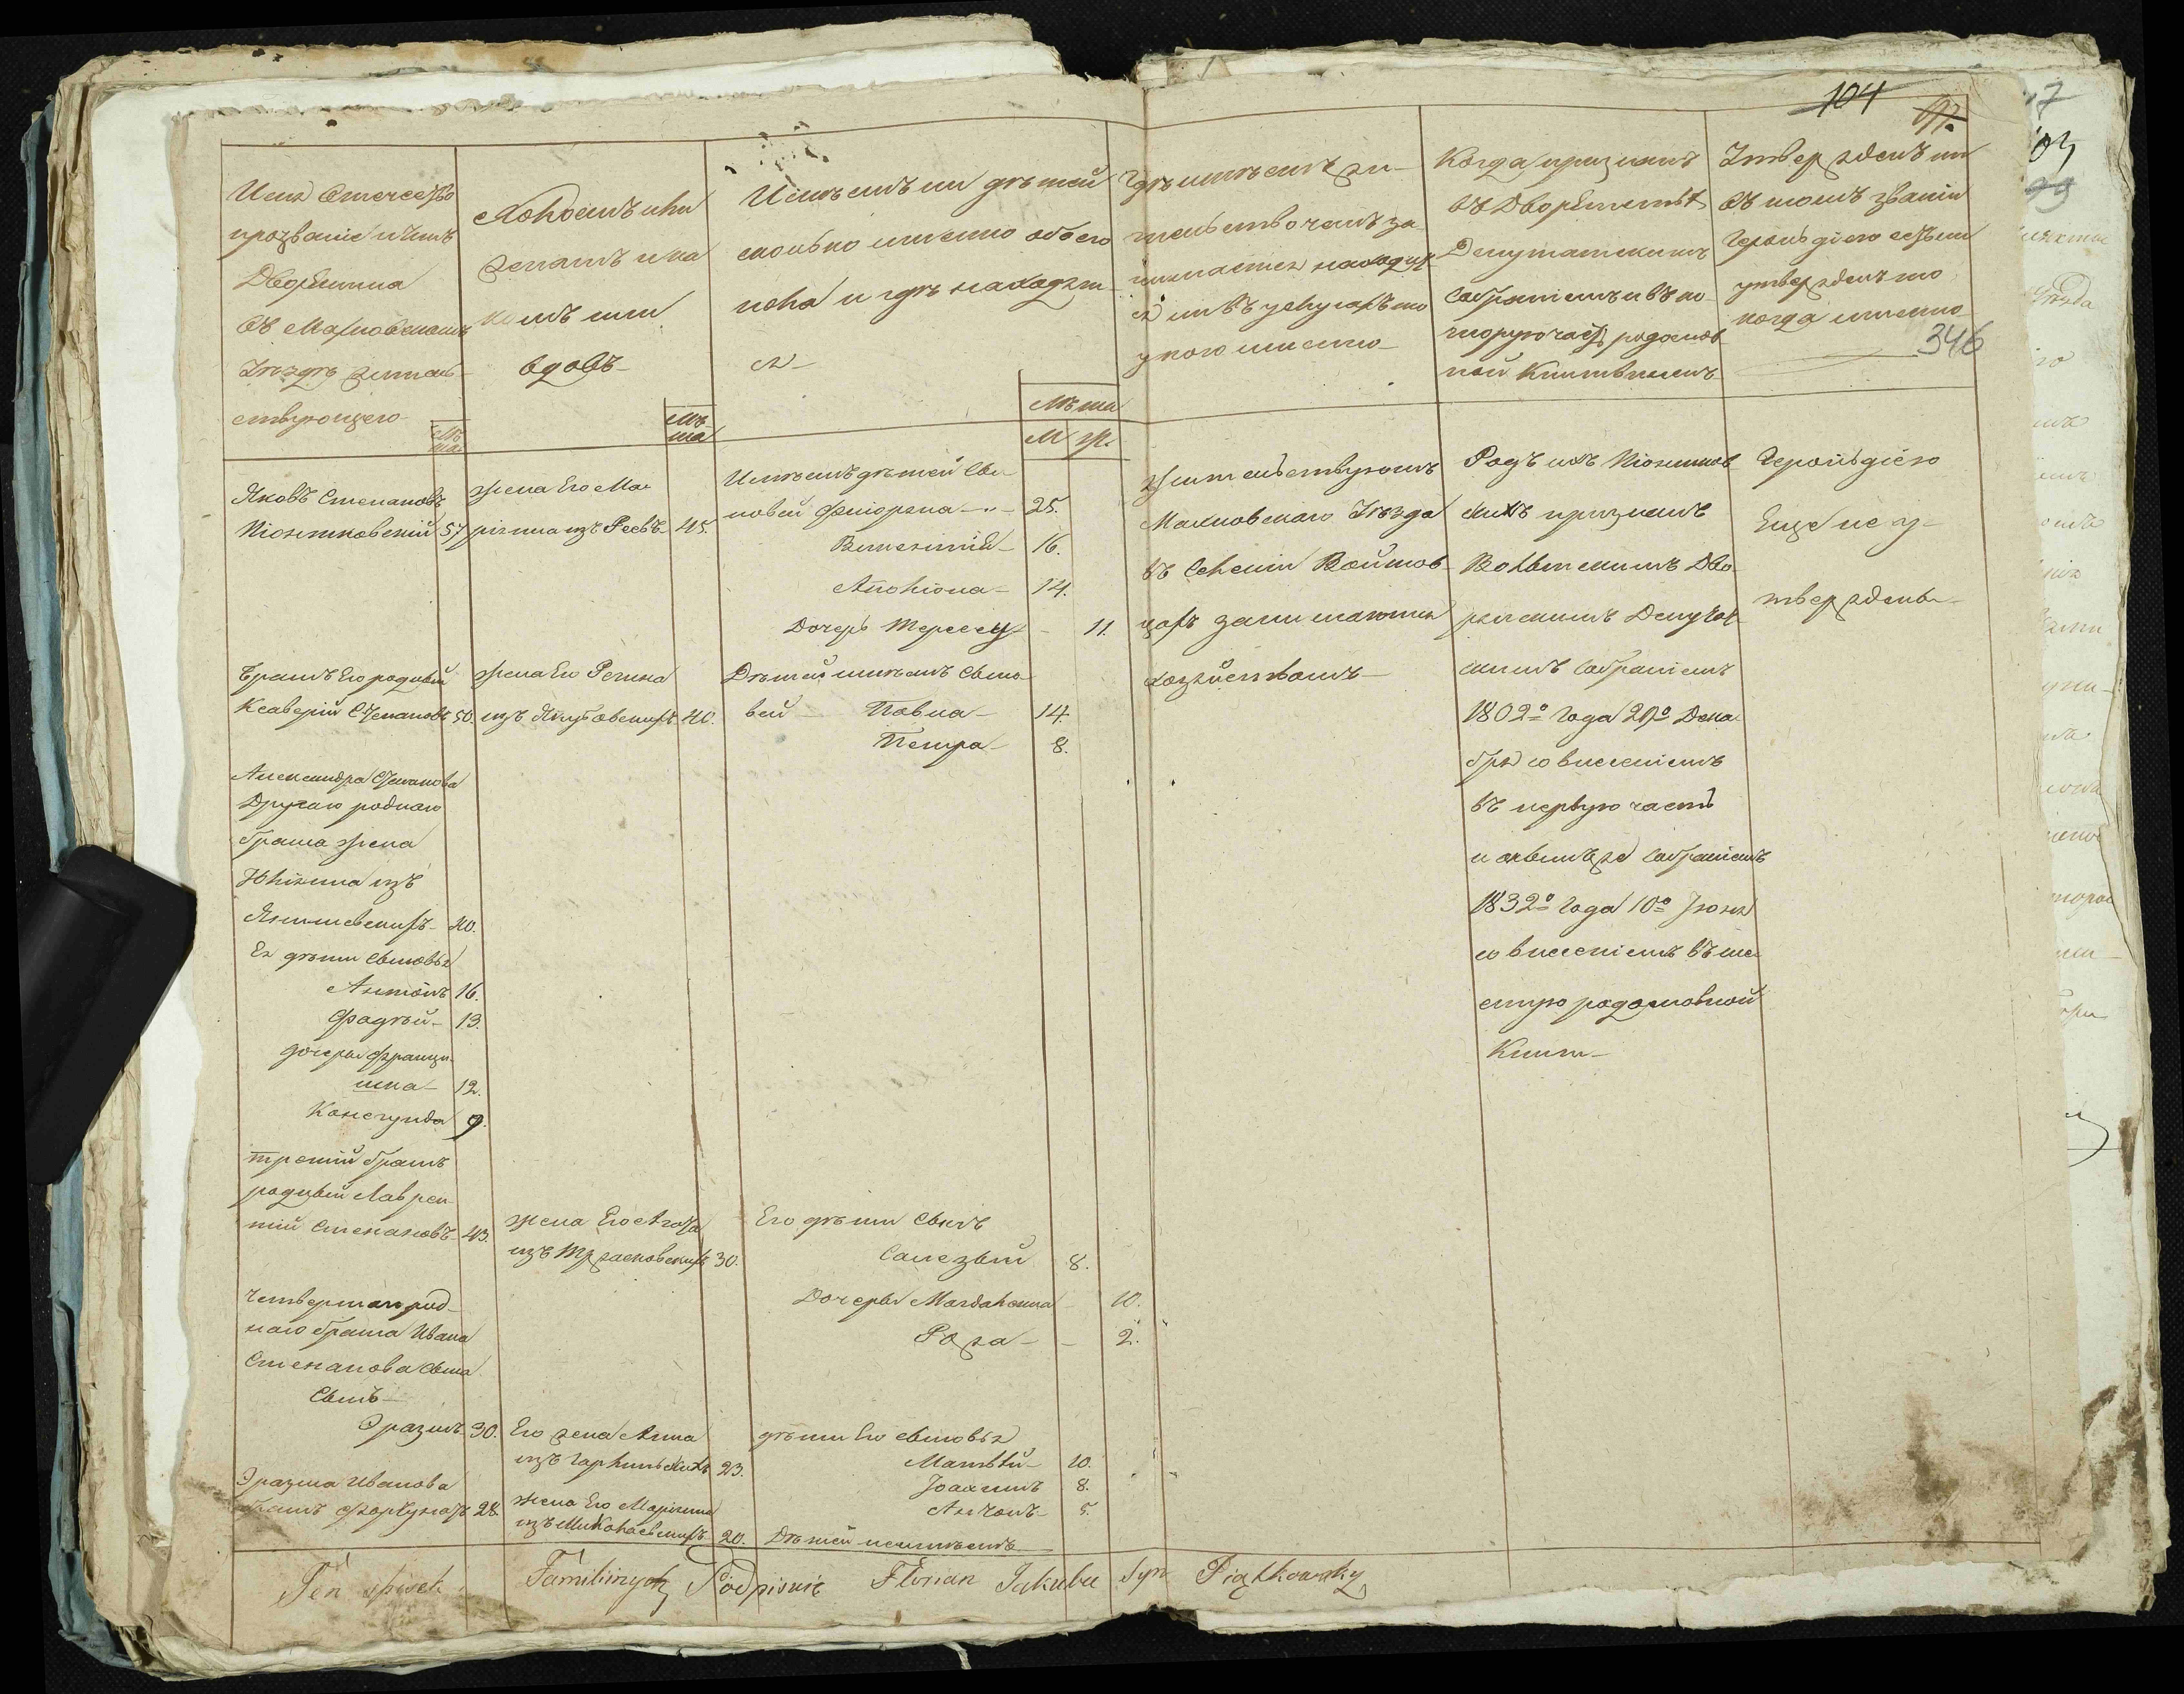 104
97.
Имя Отечество
прозваніе и чинъ
Дворянина
въ Махновскомъ
Уѣздѣ жительствующаго
Лѣта
Холостъ или
женатъ и на
комъ или
вдовъ
Лѣта
Имѣетъ ли дѣтей
сколько именно обоего
пола и гдѣ находятся
Лѣта
М Ж.
Гдѣ имѣетъ жительство чемъ занимается
находится ли въ услугахъ то
у кого именно
Когда признанъ
въ Дворянствѣ
Депутатскимъ
Собраніемъ и въ которую часть родословной
Книги внесенъ
Утвержденъ ли
въ томъ званіи
Герольдіею если
утвержденъ то
когда именно
346
Яковъ Степановъ
Піонтковскій 57
жена Его Маріянна изъ 45.
Имѣетъ дѣтей Сыновей Флоріяна 25.
Викентій 16.
Аполіона 14.
Дочерь Тересу 11.
Жительствуютъ
Махновскаго Уѣзда
въ Селеніи
занимаются
хозяйствомъ
Родъ ихъ Піонтковскихъ признанъ
Волынскимъ Дворянскимъ Депутатскимъ Собраніемъ
1802го Года 29го Декабря со внесеніемъ
въ первую часть
и онымъ же Собраніемъ
1832го Года 10го Іюня
со внесеніемъ въ шестую родословной
Книги
Герольдіею
Еще не утверждены
Братъ Его родный
Ксаверій Степановъ 50.
жена Его Регина
изъ Якубовскихъ 40.
Дѣтей имѣетъ Сыновей Павла 14.
Петра 8.
Александра Степанова
Другаго роднаго
брата жена
Юліянна изъ
Янишевскихъ 40.
Ея дѣти Сыновья
Антонъ 16.
Фадѣй 13.
дочери Францишка 12.
Конегунда 9.
третій братъ
родный Лаврентій Степановъ 43.
жена Его Агата
изъ 30.
Его дѣти Сынъ
Салезый 8.
Дочеры Магдалена 10.
Роза 2.
Четвертаго роднаго брата Ивана
Степанова Сына
Сынъ
Эразмъ 30.
Его жена Анна
изъ 23.
дѣти Его сыновья
Матвѣй 10.
Іоахимъ 8.
Антонъ 5.
Эразма Иванова
братъ Фортунатъ 28.
жена Его Маріянна
изъ Миколаевскихъ 20.
Дѣтей неимѣетъ
Ten spisek Familinych Podpisuie Florian Jakuba Syn Piątkowsky